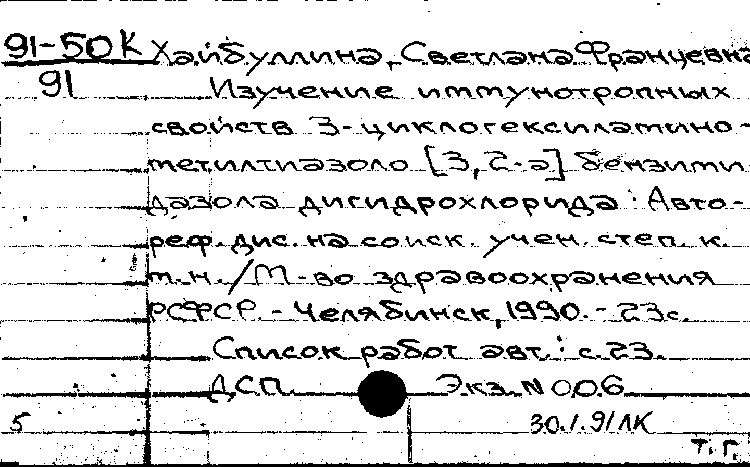 91-50К Хайбуллина, Светлана Францевна
91 Изучение иммунотропных
свойств 3-циклогексиламино-
метилтиазоло [3,2-а] бензими
дазола дигидрохлорида : Авто-
реф. дис. на соиск. учен. степ. к.
м.н. / М-во здравоохранения
РСФСР. - Челябинск, 1990. - 23с.
Список работ авт.: с.23.
ДСП. Экз. N 006
5 30.1.91 ЛК
т. г.